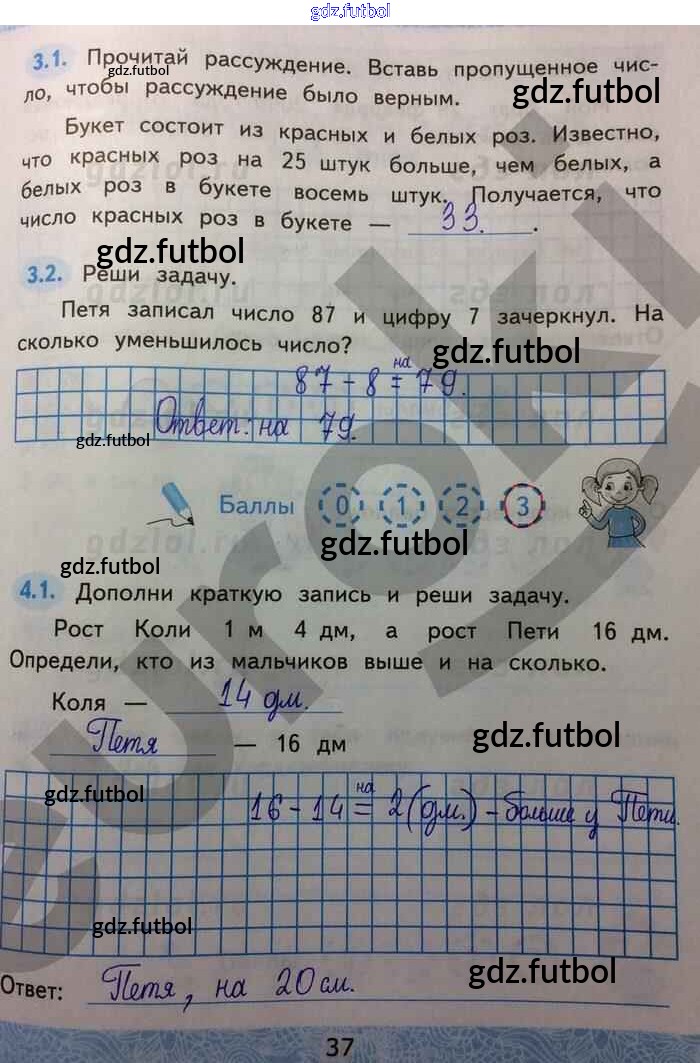 gdz.futbol
3.1. Прочитай рассуждение. Вставь пропущенное чис-
gdz.futbol
ло, чтобы рассуждение было верным.
gdz.futbol
Букет состоит из красных и белых роз. Известно,
что красных роз на 25 штук больше, чем белых, а
белых роз в букете восемь штук. Получается, что
число красных роз в букете — 33.
gdz.futbol
3.2. Реши задачу.
Петя записал число 87 и цифру 7 зачеркнул. На
сколько уменьшилось число?
gdz.futbol
87 - 8 = на 79.
Ответ: на 79.
gdz.futbol
Баллы 0 1 2 3
gdz.futbol
gdz.futbol
4.1. Дополни краткую запись и реши задачу.
Рост Коли 1 м 4 дм, а рост Пети 16 дм.
Определи, кто из мальчиков выше и на сколько.
Коля — 14 дм.
Петя — 16 дм
gdz.futbol
gdz.futbol
16 - 14 = на 2 (дм.) - больше у Пети.
gdz.futbol
gdz.futbol
Ответ: Петя, на 20 см.
37